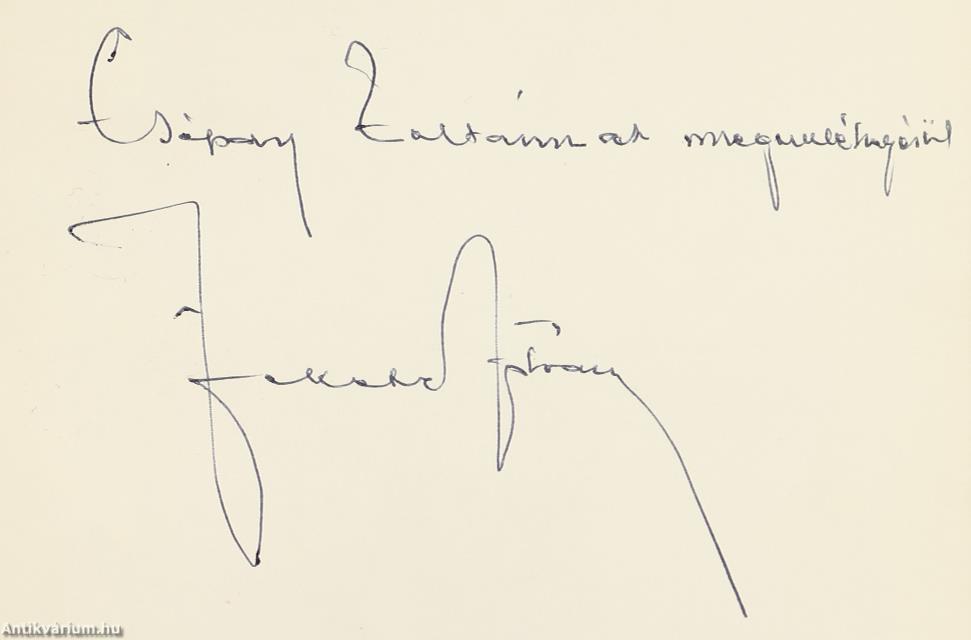 Csépany Zoltánnak megemlékezésül
Fekete István
Antikvárium.hu